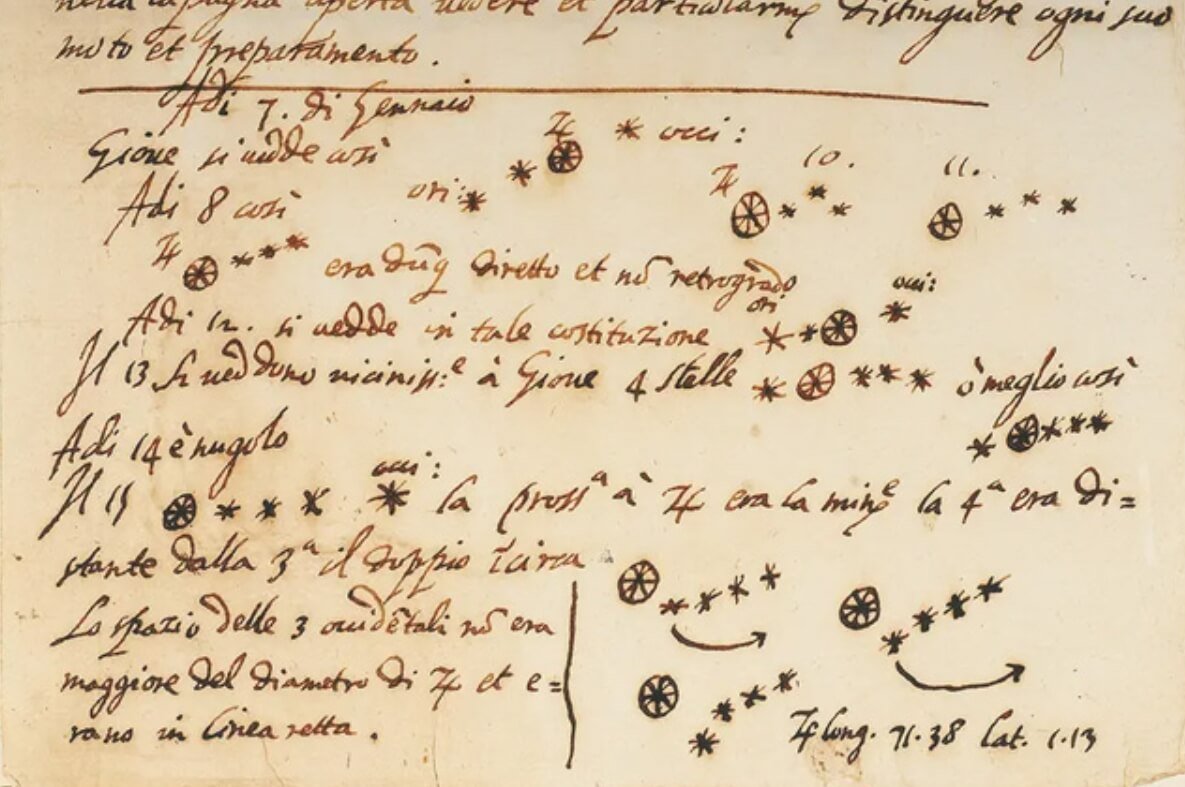 nella campagna aperta vedere et particolarmẽ distinguere ogni suo
moto et preparamento.
Adi 7. di Gennaio
Gioue si uedde così
ori: ♃ occi:
Adi 8 così
♃ 10. 11.
♃ era dũq diretto et nõ retrogrado
Adi 12. si uedde in tale costituzione ori occi:
Il 13 si ueddono uiciniss:e à Gioue 4 stelle ò meglio così
Adi 14 è nugolo
Il 15 occi: la prossa à ♃ era la mine la 4a era di=
stante dalla 3a il doppio ĩcirca
Lo spazio delle 3 occidẽtali nõ era
maggiore del diametro di ♃ et e=
rano in linea retta.
♃ long. 71.38 lat. 1.13